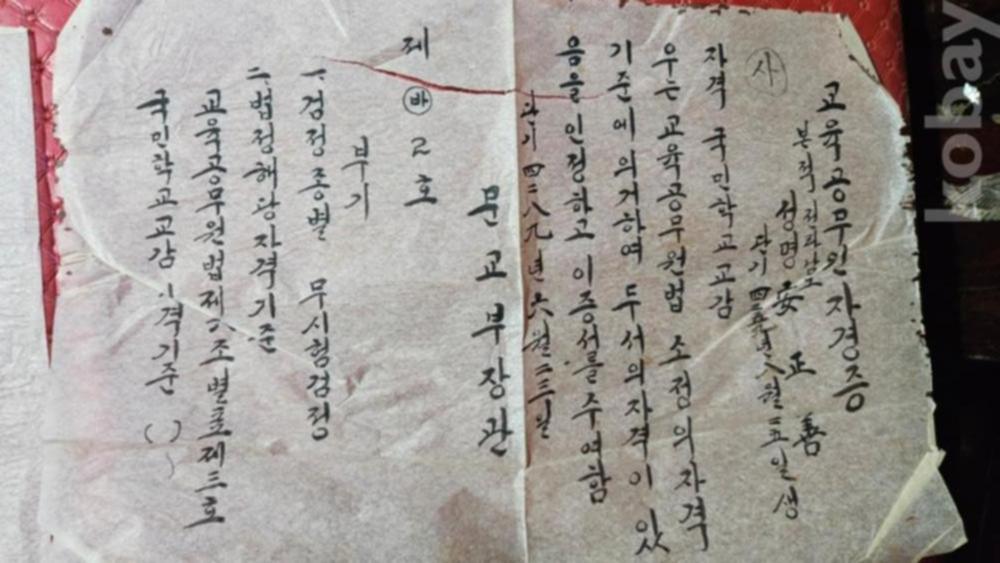 교육공무원 자격증
본적 전라남도
성명 安正善
단기 四二 年 八월 二五일생
㉴
자격 국민학교교감
우는 교육공무원법 소정의 자격
기준에 의거하여 두서의 자격이 있
음을 인정하고 이 증서를 주여함
단기 四二八九년 六월 二三일
문교부장관
제 ㉳ 2호
부기
一 검정종별 무시험검정
二 법정해당자격기준
교육공무원법 제六조 별표 제三호
국민학교교감 격기준 ( )
kobay